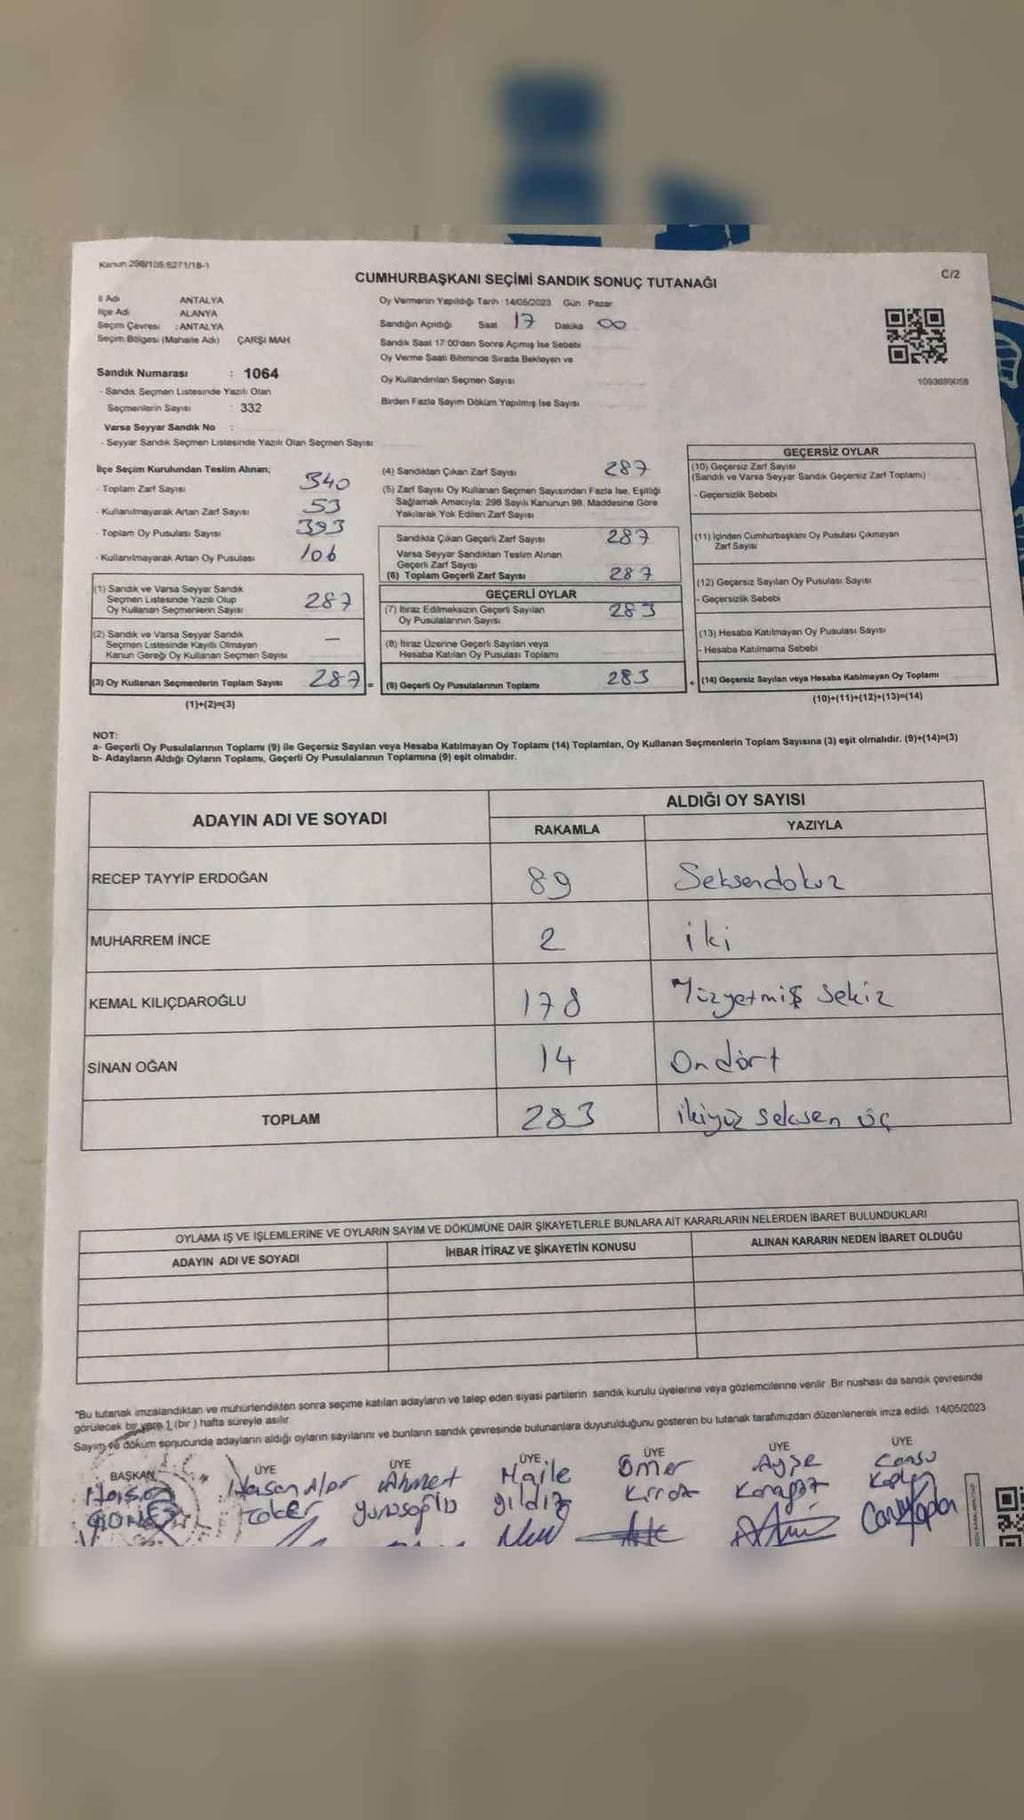 Kanun 298/105;6271/18-1
CUMHURBAŞKANI SEÇİMİ SANDIK SONUÇ TUTANAĞI
C/2
İl Adı ANTALYA
İlçe Adı ALANYA
Seçim Çevresi : ANTALYA
Seçim Bölgesi (Mahalle Adı) ÇARŞI MAH
Sandık Numarası : 1064
- Sandık Seçmen Listesinde Yazılı Olan
Seçmenlerin Sayısı : 332
Varsa Seyyar Sandık No :
- Seyyar Sandık Seçmen Listesinde Yazılı Olan Seçmen Sayısı:
Oy Vermenin Yapıldığı Tarih 14/05/2023 Gün Pazar
Sandığın Açıldığı Saat 17 Dakika 00
Sandık Saat 17:00'den Sonra Açımış İse Sebebi
Oy Verme Saati Bitiminde Sırada Bekleyen ve
Oy Kullandırılan Seçmen Sayısı
Birden Fazla Sayım Döküm Yapılmış İse Sayısı
1093699058
İlçe Seçim Kurulundan Teslim Alınan;
- Toplam Zarf Sayısı 340
- Kullanılmayarak Artan Zarf Sayısı 53
- Toplam Oy Pusulası Sayısı 393
- Kullanılmayarak Artan Oy Pusulası 106
(1) Sandık ve Varsa Seyyar Sandık
Seçmen Listesinde Yazılı Olup
Oy Kullanan Seçmenlerin Sayısı 287
(2) Sandık ve Varsa Seyyar Sandık
Seçmen Listesinde Kayıtlı Olmayan
Kanun Gereği Oy Kullanan Seçmen Sayısı —
(3) Oy Kullanan Seçmenlerin Toplam Sayısı 287 =
(1)+(2)=(3)
(4) Sandıktan Çıkan Zarf Sayısı 287
(5) Zarf Sayısı Oy Kullanan Seçmen Sayısından Fazla İse, Eşitliği
Sağlamak Amacıyla; 298 Sayılı Kanunun 98. Maddesine Göre
Yakılarak Yok Edilen Zarf Sayısı
Sandıkta Çıkan Geçerli Zarf Sayısı 287
Varsa Seyyar Sandıktan Teslim Alınan
Geçerli Zarf Sayısı
(6) Toplam Geçerli Zarf Sayısı 287
GEÇERLİ OYLAR
(7) İtiraz Edilmeksizin Geçerli Sayılan
Oy Pusulalarının Sayısı 283
(8) İtiraz Üzerine Geçerli Sayılan veya
Hesaba Katılan Oy Pusulası Toplamı
(9) Geçerli Oy Pusulalarının Toplamı 283 +
GEÇERSİZ OYLAR
(10) Geçersiz Zarf Sayısı
(Sandık ve Varsa Seyyar Sandık Geçersiz Zarf Toplamı)
- Geçersizlik Sebebi
(11) İçinden Cumhurbaşkanı Oy Pusulası Çıkmayan
Zarf Sayısı
(12) Geçersiz Sayılan Oy Pusulası Sayısı
- Geçersizlik Sebebi
(13) Hesaba Katılmayan Oy Pusulası Sayısı
- Hesaba Katılmama Sebebi
(14) Geçersiz Sayılan veya Hesaba Katılmayan Oy Toplamı
(10)+(11)+(12)+(13)=(14)
NOT:
a- Geçerli Oy Pusulalarının Toplamı (9) ile Geçersiz Sayılan veya Hesaba Katılmayan Oy Toplamı (14) Toplamları, Oy Kullanan Seçmenlerin Toplam Sayısına (3) eşit olmalıdır. (9)+(14)=(3)
b- Adayların Aldığı Oyların Toplamı, Geçerli Oy Pusulalarının Toplamına (9) eşit olmalıdır.
ADAYIN ADI VE SOYADI
ALDIĞI OY SAYISI
RAKAMLA YAZIYLA
RECEP TAYYİP ERDOĞAN 89 Seksendokuz
MUHARREM İNCE 2 iki
KEMAL KILIÇDAROĞLU 178 Yüzyetmiş sekiz
SİNAN OĞAN 14 Ondört
TOPLAM 283 ikiyüz seksen üç
OYLAMA İŞ VE İŞLEMLERİNE VE OYLARIN SAYIM VE DÖKÜMÜNE DAİR ŞİKAYETLERLE BUNLARA AİT KARARLARIN NELERDEN İBARET BULUNDUKLARI
ADAYIN ADI VE SOYADI İHBAR İTİRAZ VE ŞİKAYETİN KONUSU ALINAN KARARIN NEDEN İBARET OLDUĞU
*Bu tutanak imzalandıktan ve mühürlendikten sonra seçime katılan adayların ve talep eden siyasi partilerin sandık kurulu üyelerine veya gözlemcilerine verilir. Bir nüshası da sandık çevresinde
görülecek bir yere 1 (bir) hafta süreyle asılır.
Sayım ve döküm sonucunda adayların aldığı oyların sayılarını ve bunların sandık çevresinde bulunanlara duyurulduğunu gösteren bu tutanak tarafımızdan düzenlenerek imza edildi. 14/05/2023
BAŞKAN ÜYE ÜYE ÜYE ÜYE ÜYE ÜYE
Hasan Alper Ahmet Naile Ömer Ayşe Cansu
Toker Yıldız Kaplan